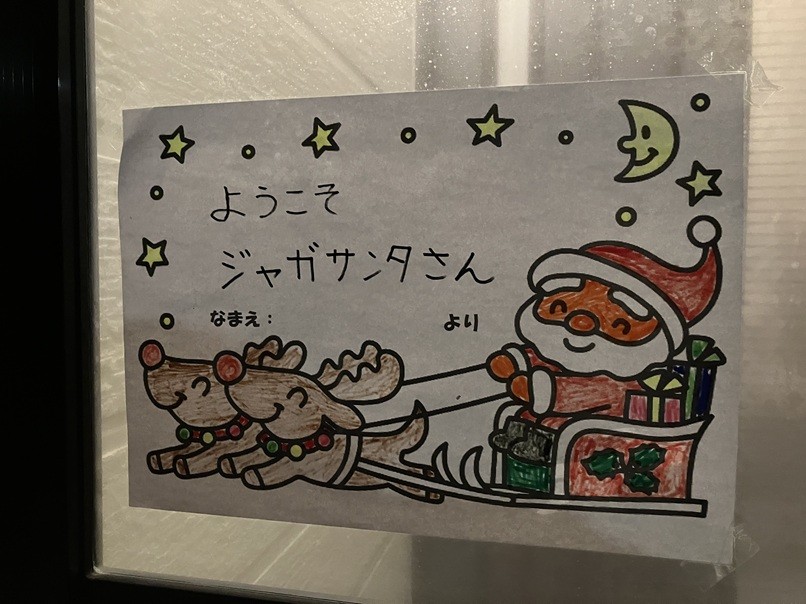 ようこそ
ジャガサンタさん
なまえ： より